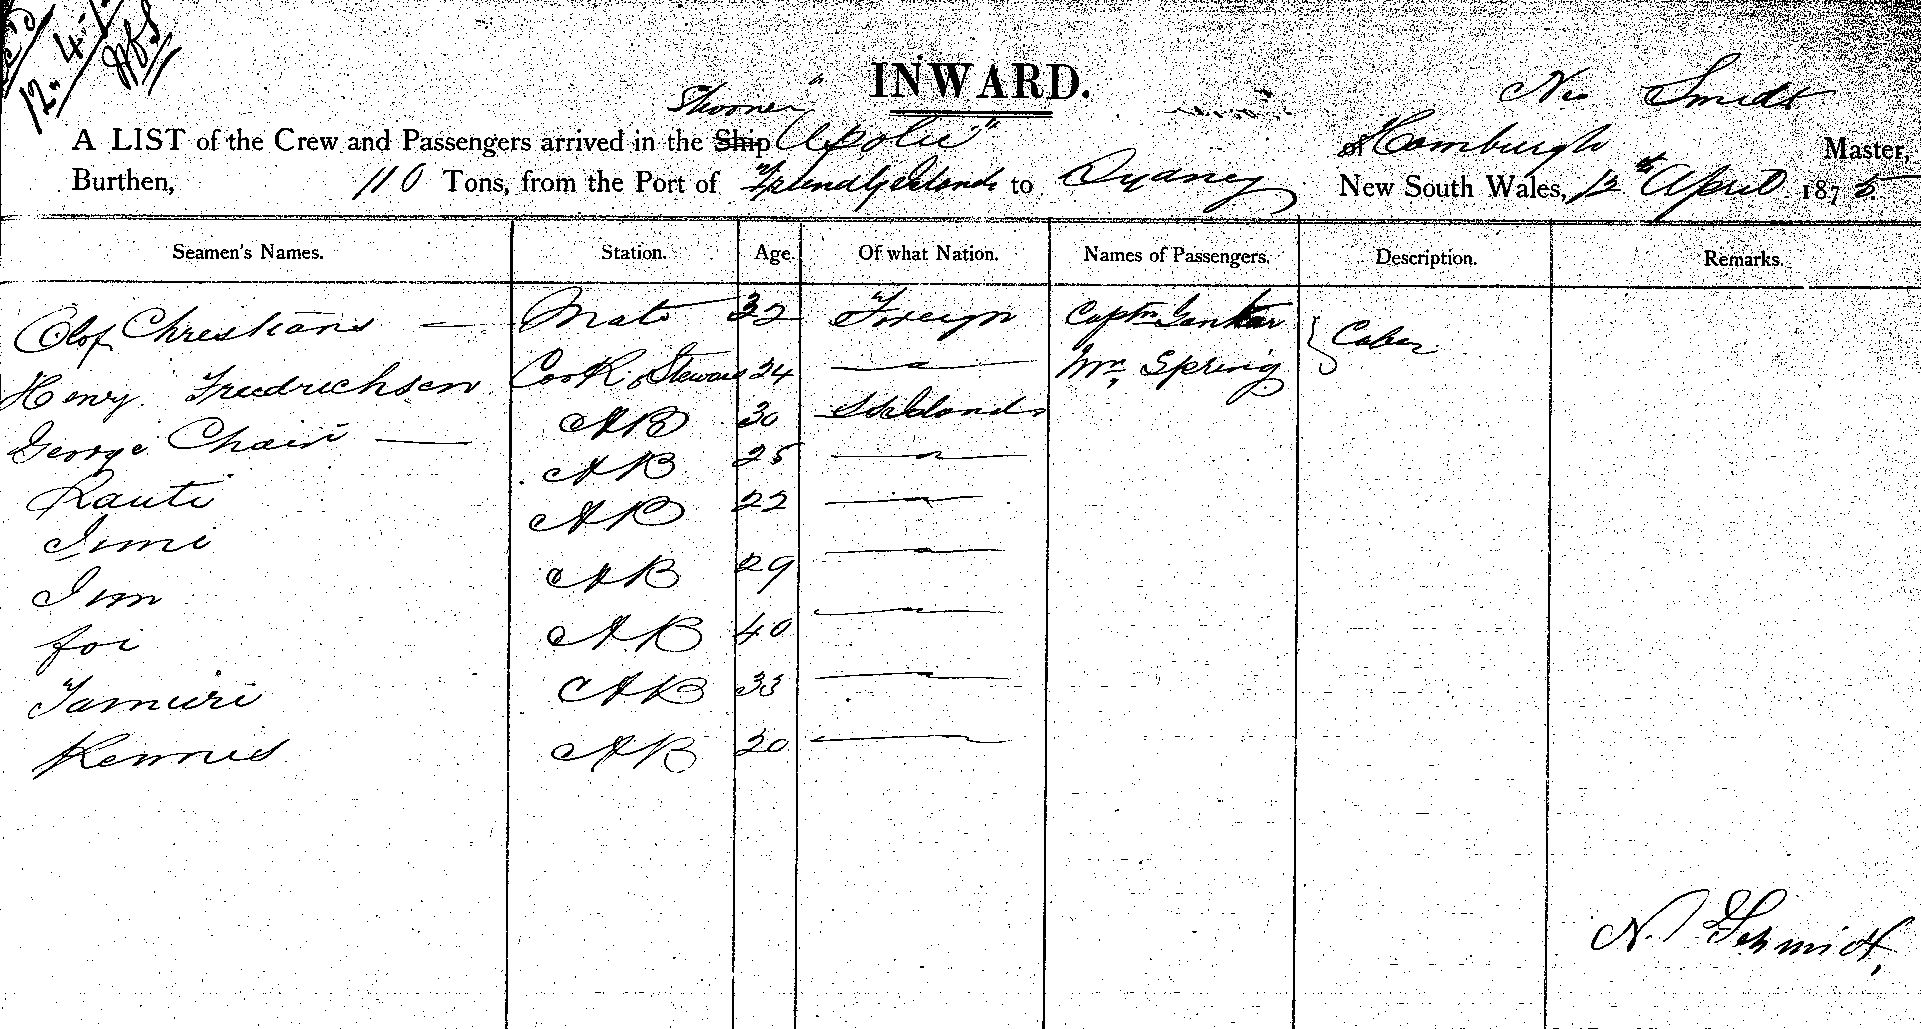 12. 4.
INWARD.
Schooner
A LIST of the Crew and Passengers arrived in the Ship "Apolu" of Hamburgh Master,
Burthen, 110 Tons, from the Port of Friendly Islands to Sydney New South Wales, 12th April 1875
Seamen's Names. Station. Age. Of what Nation. Names of Passengers. Description. Remarks.
Olof Christians — Mate 32 Foreign Captn Cabin
Henry Fredrichsen Cook & Steward 24 — " — Mr. Spring
George Chain — AB 30 S S Islands
Rauti AB 25 — " —
Jimi AB 22 — " —
Jim AB 29 — " —
Joi AB 40 — " —
Tamuri AB 33 — " —
AB 20 — " —
N. Schmidt,